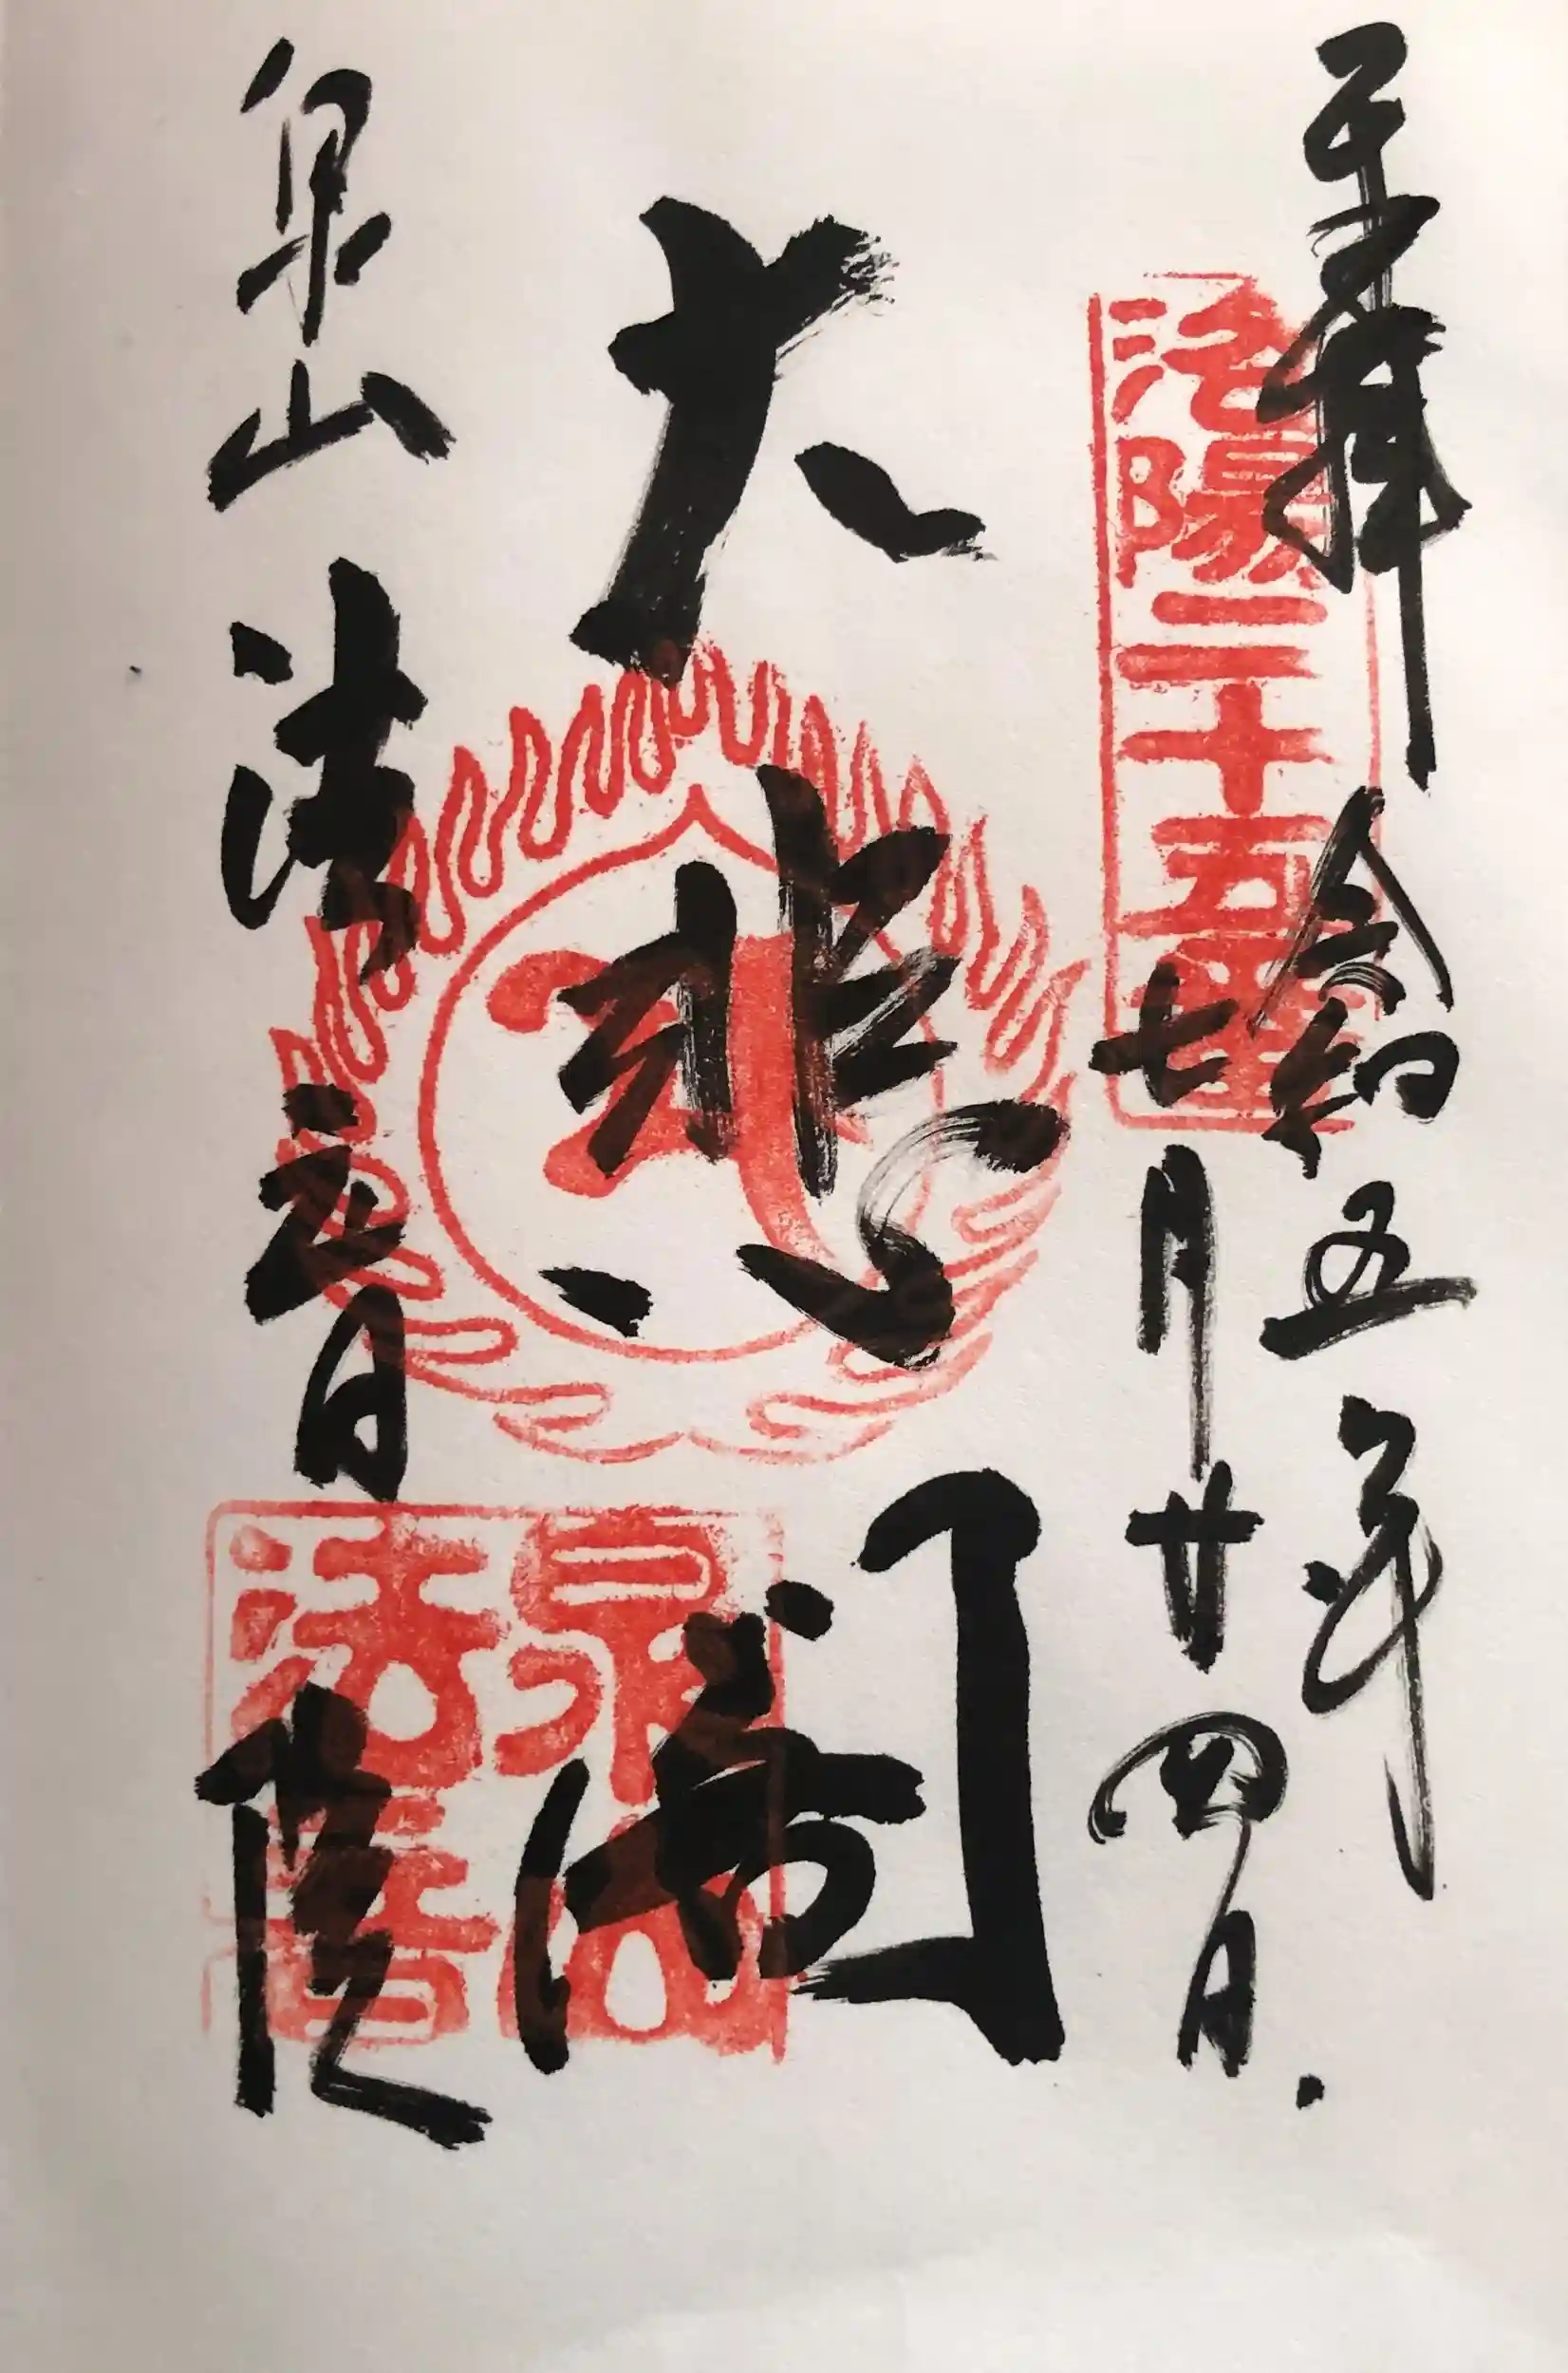 奉拝
令和五年
七月廿四日
洛陽二十五番
大悲閣
泉山
法音院
泉山
法音